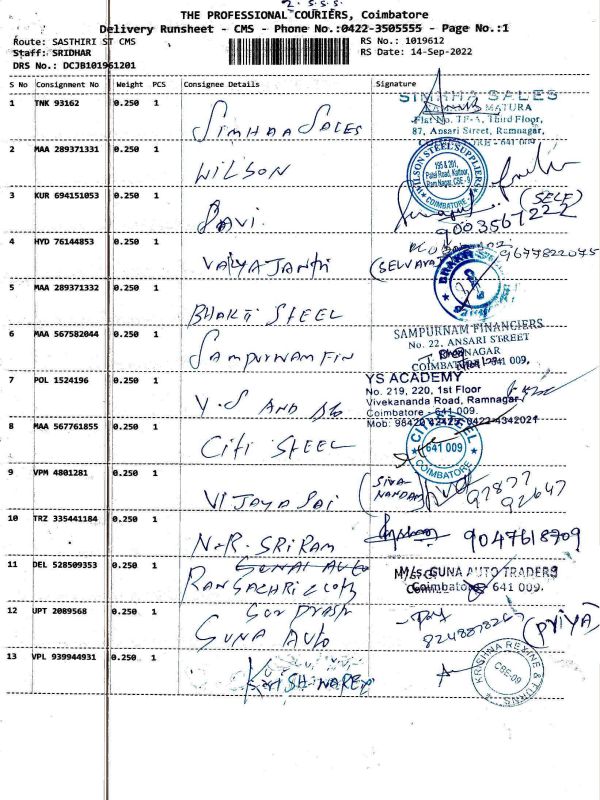 2. S.S.S.
THE PROFESSIONAL COURIERS, Coimbatore
Delivery Runsheet - CMS - Phone No.:0422-3505555 - Page No.:1
Route: SASTHIRI ST CMS
RS No.: 1019612
Staff: SRIDHAR
RS Date: 14-Sep-2022
DRS No.: DCJB101961201
S No Consignment No Weight PCS Consignee Details Signature
1 TNK 93162 0.250 1 SIMHAA SALES
SIMHHA SALES
MATURA
Flat No. TF-A, Third Floor,
87, Ansari Street, Ramnagar,
641 011
2 MAA 289371331 0.250 1 WILSON
WILSON STEEL SUPPLIERS
195 & 201,
Patel Road, Kattoor,
Ram Nagar, CBE - 9
COIMBATORE
3 KUR 694151053 0.250 1 RAVI
(SELF)
9003567222
4 HYD 76144853 0.250 1 VAIJAYANTHI
9677822075
5 MAA 289371332 0.250 1 BHAKTI STEEL
BHAKTI
6 MAA 567582044 0.250 1 SAMPURNAM FIN
SAMPURNAM FINANCIERS
No. 22, ANSARI STREET
RAMNAGAR
COIMBATORE 641 009.
7 POL 1524196 0.250 1 Y.S AND
YS ACADEMY
No. 219, 220, 1st Floor
Vivekananda Road, Ramnagar
Coimbatore - 641 009.
Mob: 98420 42423, 0422-4342021
8 MAA 567761855 0.250 1 CITI STEEL
CITI STEEL
641 009
COIMBATORE
9 VPM 4801281 0.250 1 VIJAYA SAI
(SIVA
NANDAM)
97877
92647
10 TRZ 335441184 0.250 1 N.R. SRIRAM
9047618709
11 DEL 528509353 0.250 1 GUNA AUTO
M/s. GUNA AUTO TRADERS
Coimbatore 641 009.
12 UPT 2089568 0.250 1
GUNA AUTO
(PRIYA)
13 VPL 939944931 0.250 1 KRISHNA REX
KRISHNA REXINE & FURNS
CBE-09